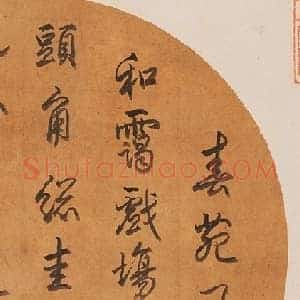 春苑
和靄戲塲
頭角総圭
Shufazidian.com